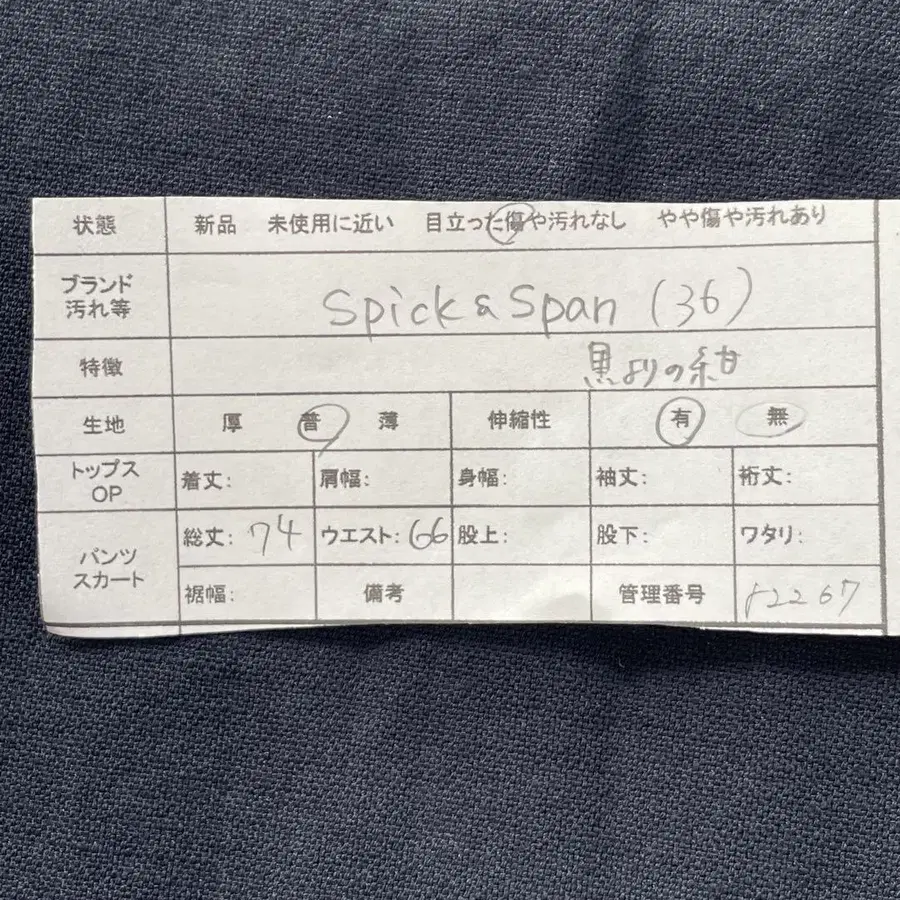 状態 新品 未使用に近い 目立った傷や汚れなし やや傷や汚れあり
ブランド
汚れ等 Spick & Span (36)
特徴 黒よりの紺
生地 厚 普 薄 伸縮性 有 無
トップス
OP 着丈: 肩幅: 身幅: 袖丈: 裄丈:
パンツ
スカート 総丈: 74 ウエスト: 66 股上: 股下: ワタリ:
裾幅: 備考 管理番号